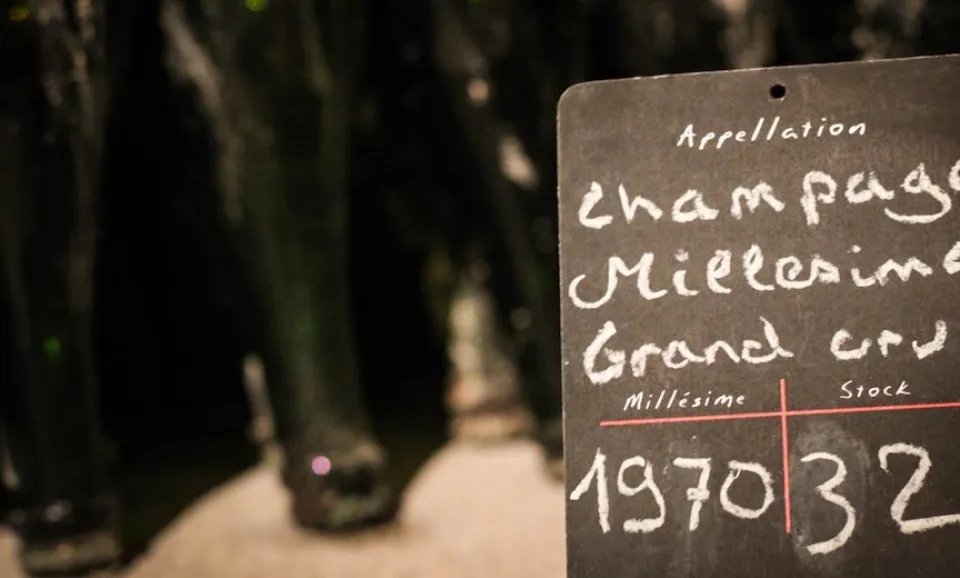 Appellation
Champag
Millesim
Grand cru
Millésime Stock
1970 32